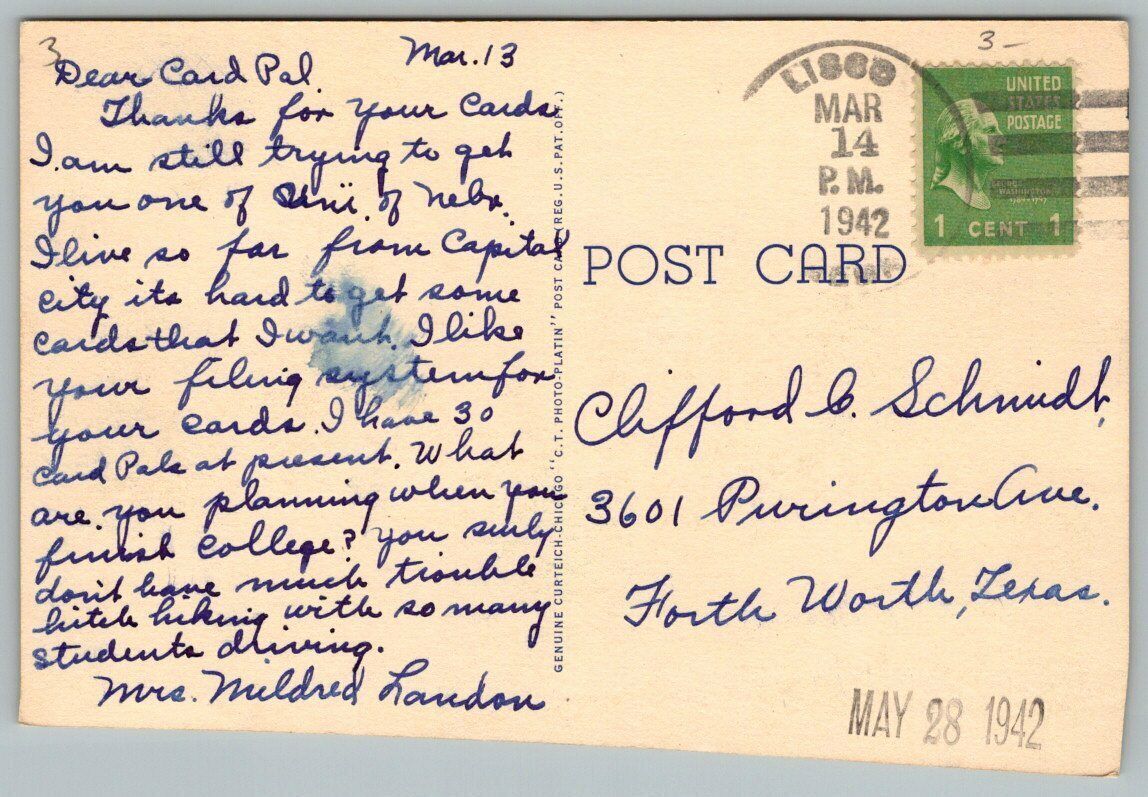 3
Mar. 13
Dear Card Pal
Thanks for your cards
I am still trying to get
you one of Uni. of Nebr.
I live so far from Capital
city its hard to get some
cards that I want. I like
your filing system for
your cards. I have 30
Card Pals at present. What
are you planning when you
finish college? You surly
don't have much trouble
hitch hiking with so many
students driving.
Mrs. Mildred Landon
GENUINE CURTEICH-CHICAGO "C.T. PHOTO-PLATIN" POST CARD (REG. U.S. PAT. OFF.)
3-
LISCO
MAR
14
P.M.
1942
UNITED
STATES
POSTAGE
GEORGE
WASHINGTON
1 CENT 1
POST CARD
Clifford C. Schmidt,
3601 Purington Ave.
Forth Worth, Texas.
MAY 28 1942